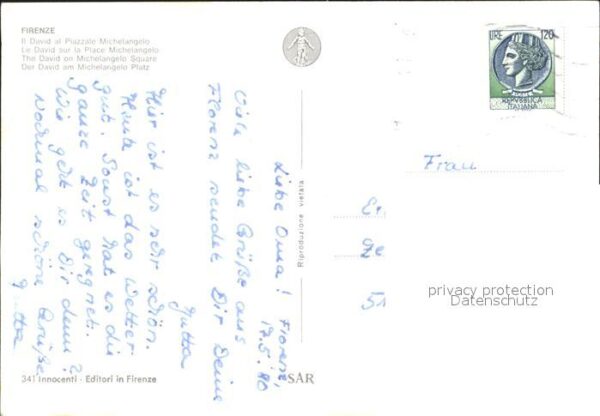 FIRENZE
Il David al Piazzale Michelangelo
Le David sur la Place Michelangelo
The David on Michelangelo Square
Der David am Michelangelo Platz
Florenz,
17.5.80
Liebe Oma!
Viele liebe Grüße aus
Florenz sendet Dir Deine
Jutta
Hier ist es sehr schön.
Heute ist das Wetter
gut. Sonst hat es die
ganze Zeit geregnet.
Wie geht es Dir denn?
Nochmal schöne Grüße
Jutta
Riproduzione vietata
341 Innocenti - Editori in Firenze
SAR
LIRE 120
REPVBBLICA
ITALIANA
Frau
Er
ge
51
privacy protection
Datenschutz